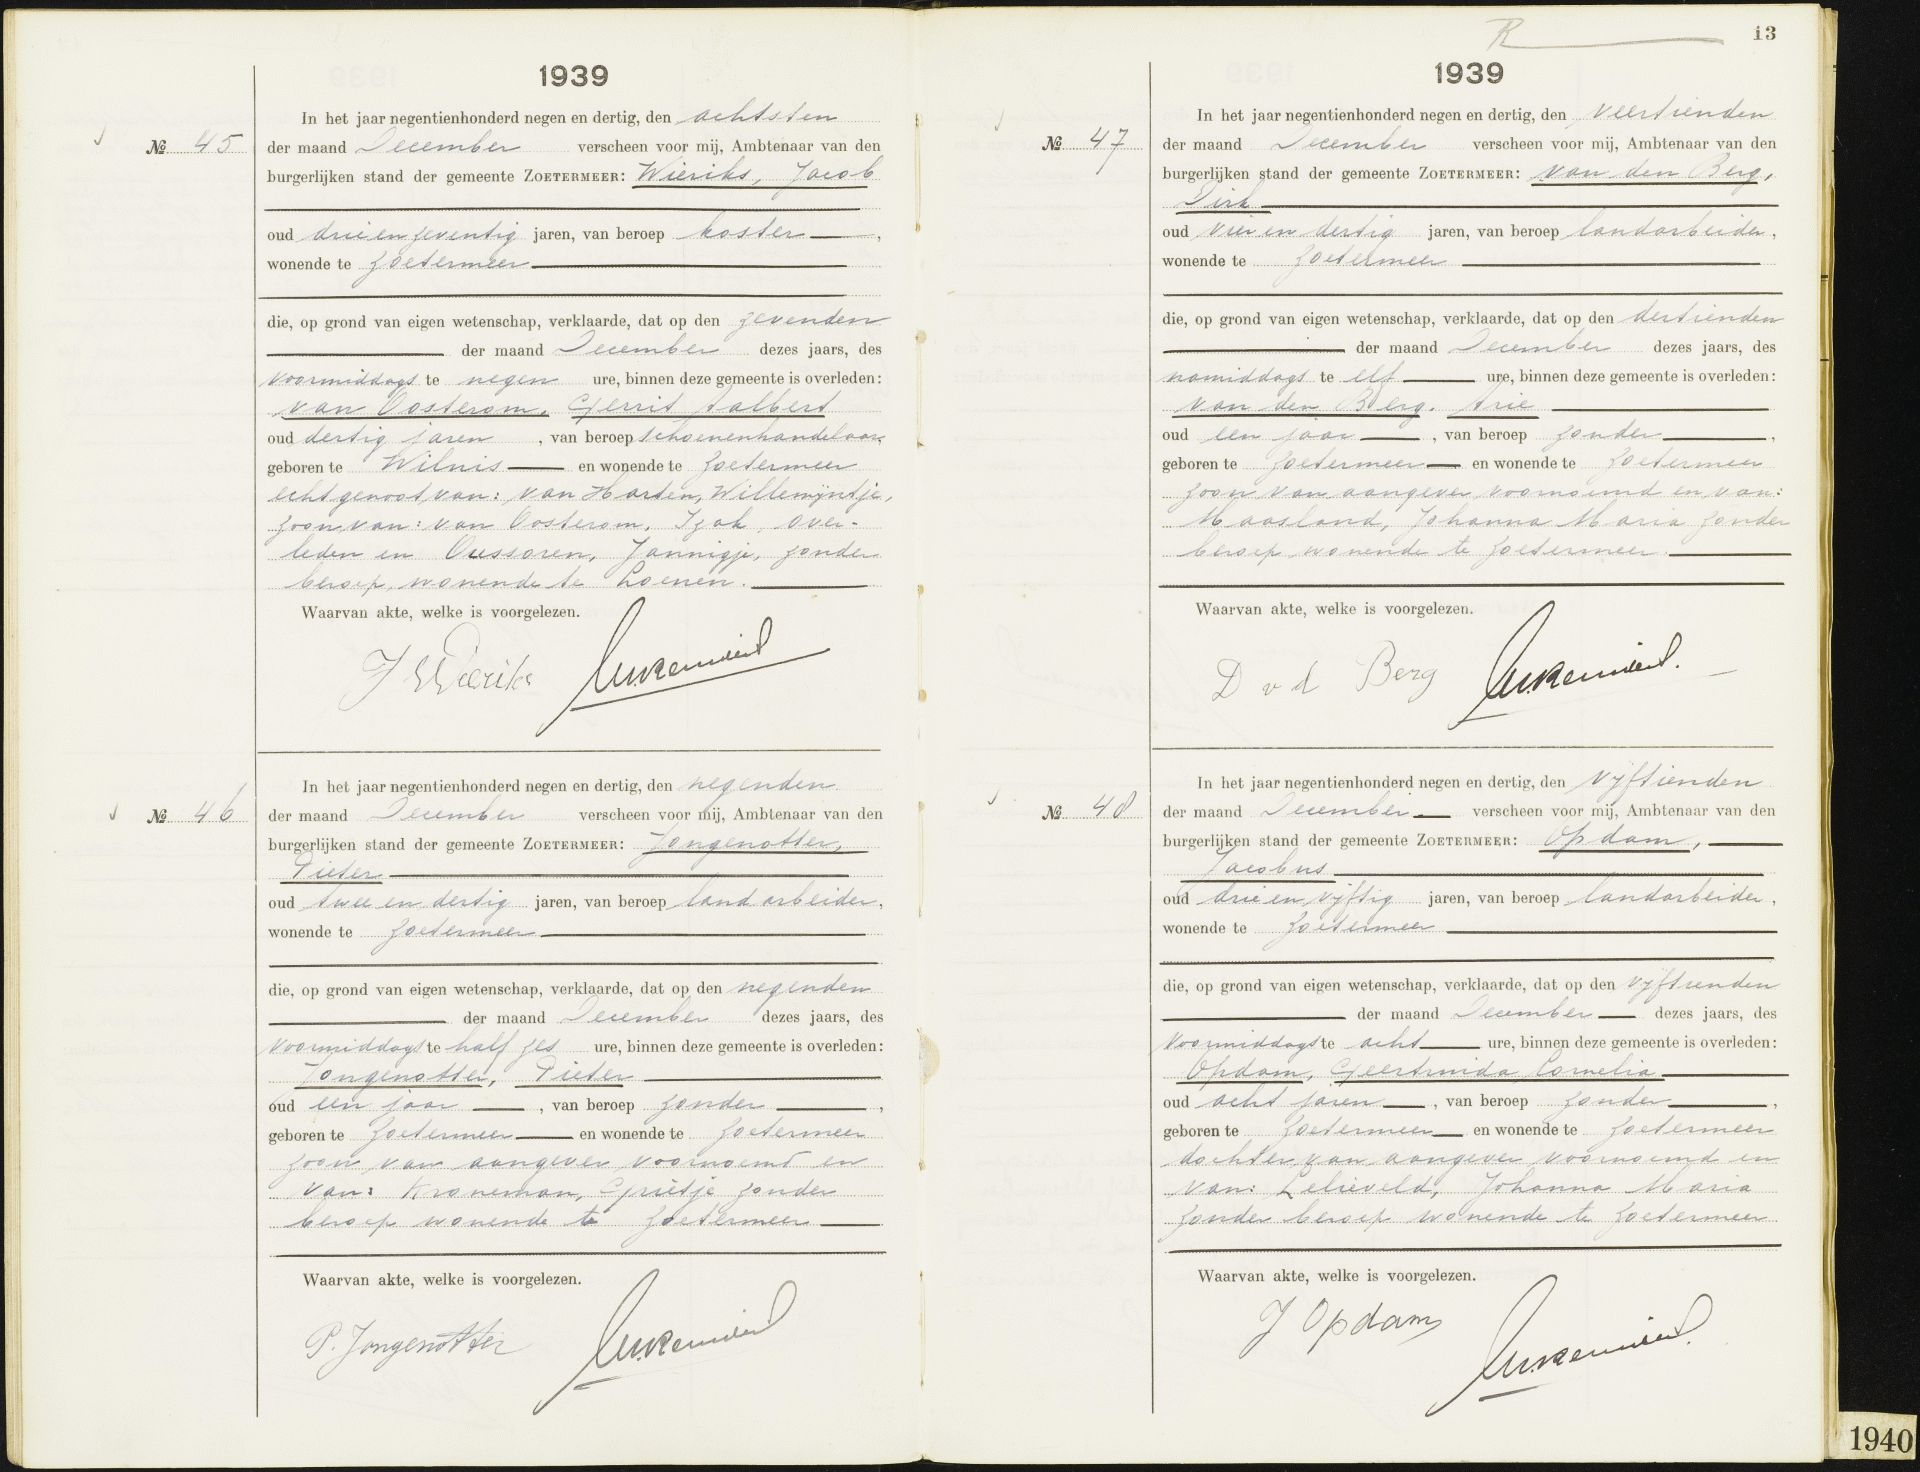 1939
In het jaar negentienhonderd negen en dertig, den achtsten
№ 45 der maand December verscheen voor mij, Ambtenaar van den
burgerlijken stand der gemeente ZOETERMEER: Wieriks, Jacob
oud drieenzeventig jaren, van beroep koster,
wonende te Zoetermeer
die, op grond van eigen wetenschap, verklaarde, dat op den zevenden
der maand December dezes jaars, des
voormiddags te negen ure, binnen deze gemeente is overleden:
van Oosterom, Gerrit Aalbert
oud dertig jaren, van beroep schoenenhandelaar
geboren te Wilnis en wonende te Zoetermeer
echtgenoot van: van Harten, Willemijntje,
zoon van: van Oosterom, Izak, over-
leden en Oussoren, Jannigje, zonder
beroep, wonende te Loenen.
Waarvan akte, welke is voorgelezen.
J Wieriks
In het jaar negentienhonderd negen en dertig, den negenden
№ 46 der maand December verscheen voor mij, Ambtenaar van den
burgerlijken stand der gemeente ZOETERMEER: Jongenotter,
Pieter
oud twee en dertig jaren, van beroep landarbeider,
wonende te Zoetermeer
die, op grond van eigen wetenschap, verklaarde, dat op den negenden
der maand December dezes jaars, des
voormiddags te half zes ure, binnen deze gemeente is overleden:
Jongenotter, Pieter
oud een jaar, van beroep zonder,
geboren te Zoetermeer en wonende te Zoetermeer
zoon van aangever voornoemd en
van: Kroneman, Grietje zonder
beroep wonende te Zoetermeer
Waarvan akte, welke is voorgelezen.
P. Jongenotter
R
13
1939
In het jaar negentienhonderd negen en dertig, den veertienden
№ 47 der maand December verscheen voor mij, Ambtenaar van den
burgerlijken stand der gemeente ZOETERMEER: van den Berg,
Dirk
oud vier en dertig jaren, van beroep landarbeider,
wonende te Zoetermeer
die, op grond van eigen wetenschap, verklaarde, dat op den dertienden
der maand December dezes jaars, des
namiddags te elf ure, binnen deze gemeente is overleden:
van den Berg, Arie
oud een jaar, van beroep zonder,
geboren te Zoetermeer en wonende te Zoetermeer
zoon van aangever voornoemd en van:
Maasland, Johanna Maria zonder
beroep wonende te Zoetermeer.
Waarvan akte, welke is voorgelezen.
D v d Berg
In het jaar negentienhonderd negen en dertig, den vijftienden
№ 48 der maand December verscheen voor mij, Ambtenaar van den
burgerlijken stand der gemeente ZOETERMEER: Opdam,
Jacobus
oud drie en vijftig jaren, van beroep landarbeider,
wonende te Zoetermeer
die, op grond van eigen wetenschap, verklaarde, dat op den vijftienden
der maand December dezes jaars, des
voormiddags te acht ure, binnen deze gemeente is overleden:
Opdam, Geertruida Cornelia
oud acht jaren, van beroep zonder,
geboren te Zoetermeer en wonende te Zoetermeer
dochter van aangever voornoemd en
van: Lelieveld, Johanna Maria
zonder beroep wonende te Zoetermeer
Waarvan akte, welke is voorgelezen.
J Opdam
1940